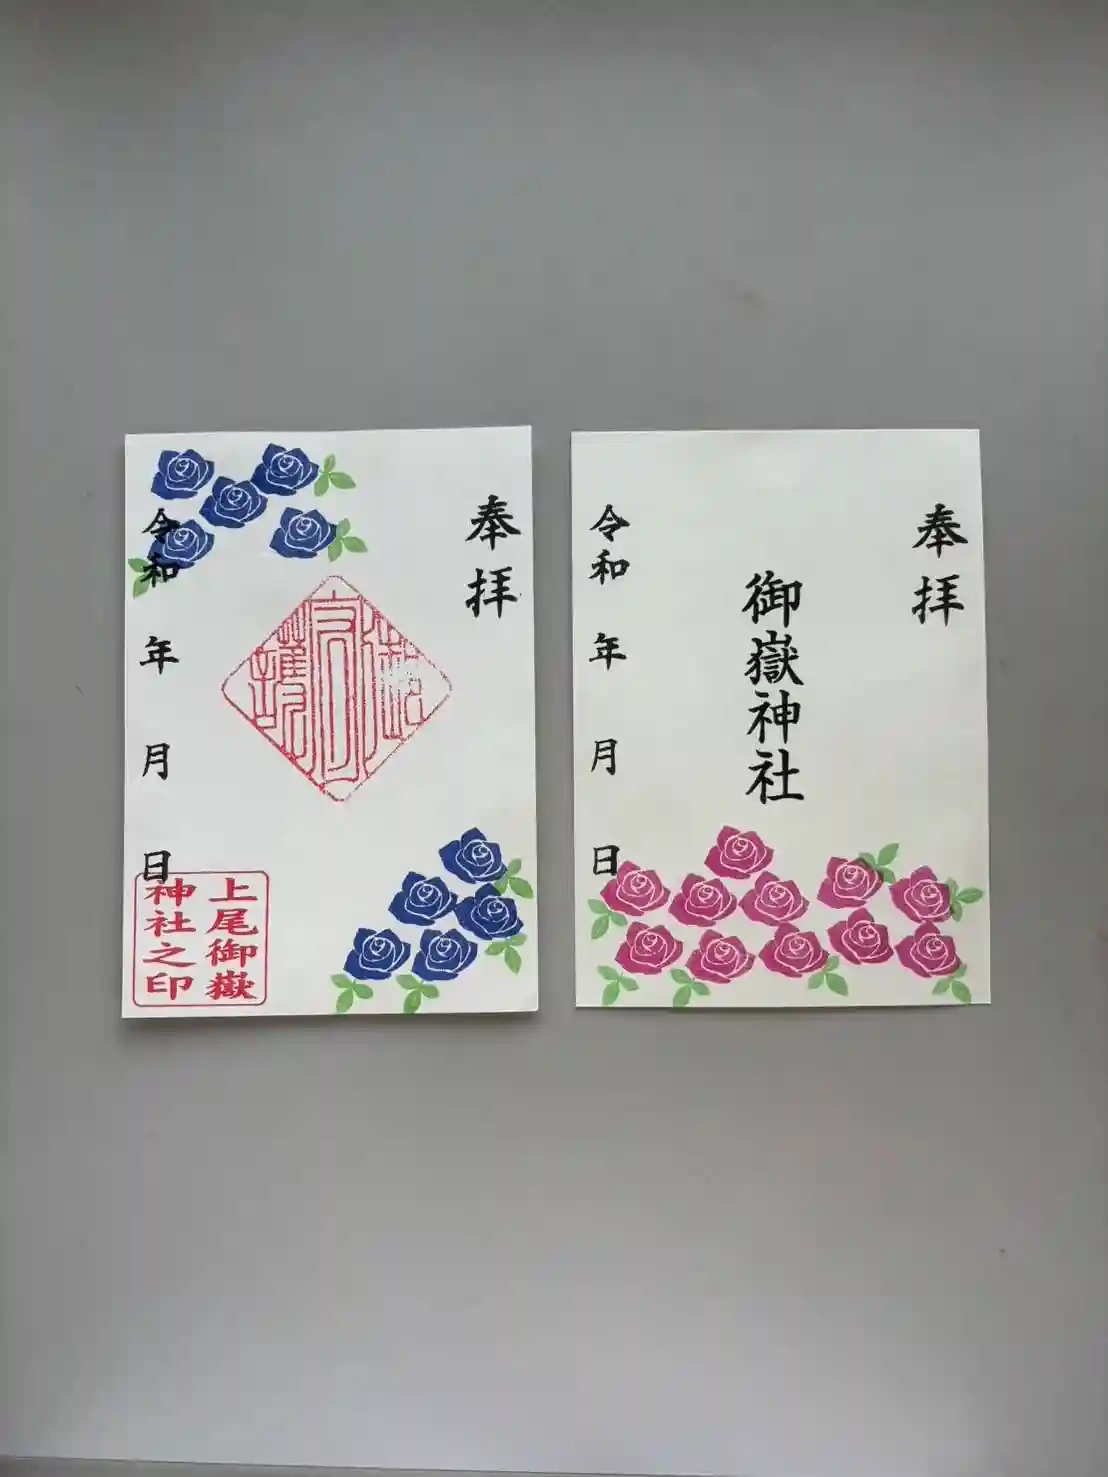 奉拝
御守護
令和 年 月 日
上尾御嶽
神社之印
奉拝
御嶽神社
令和 年 月 日